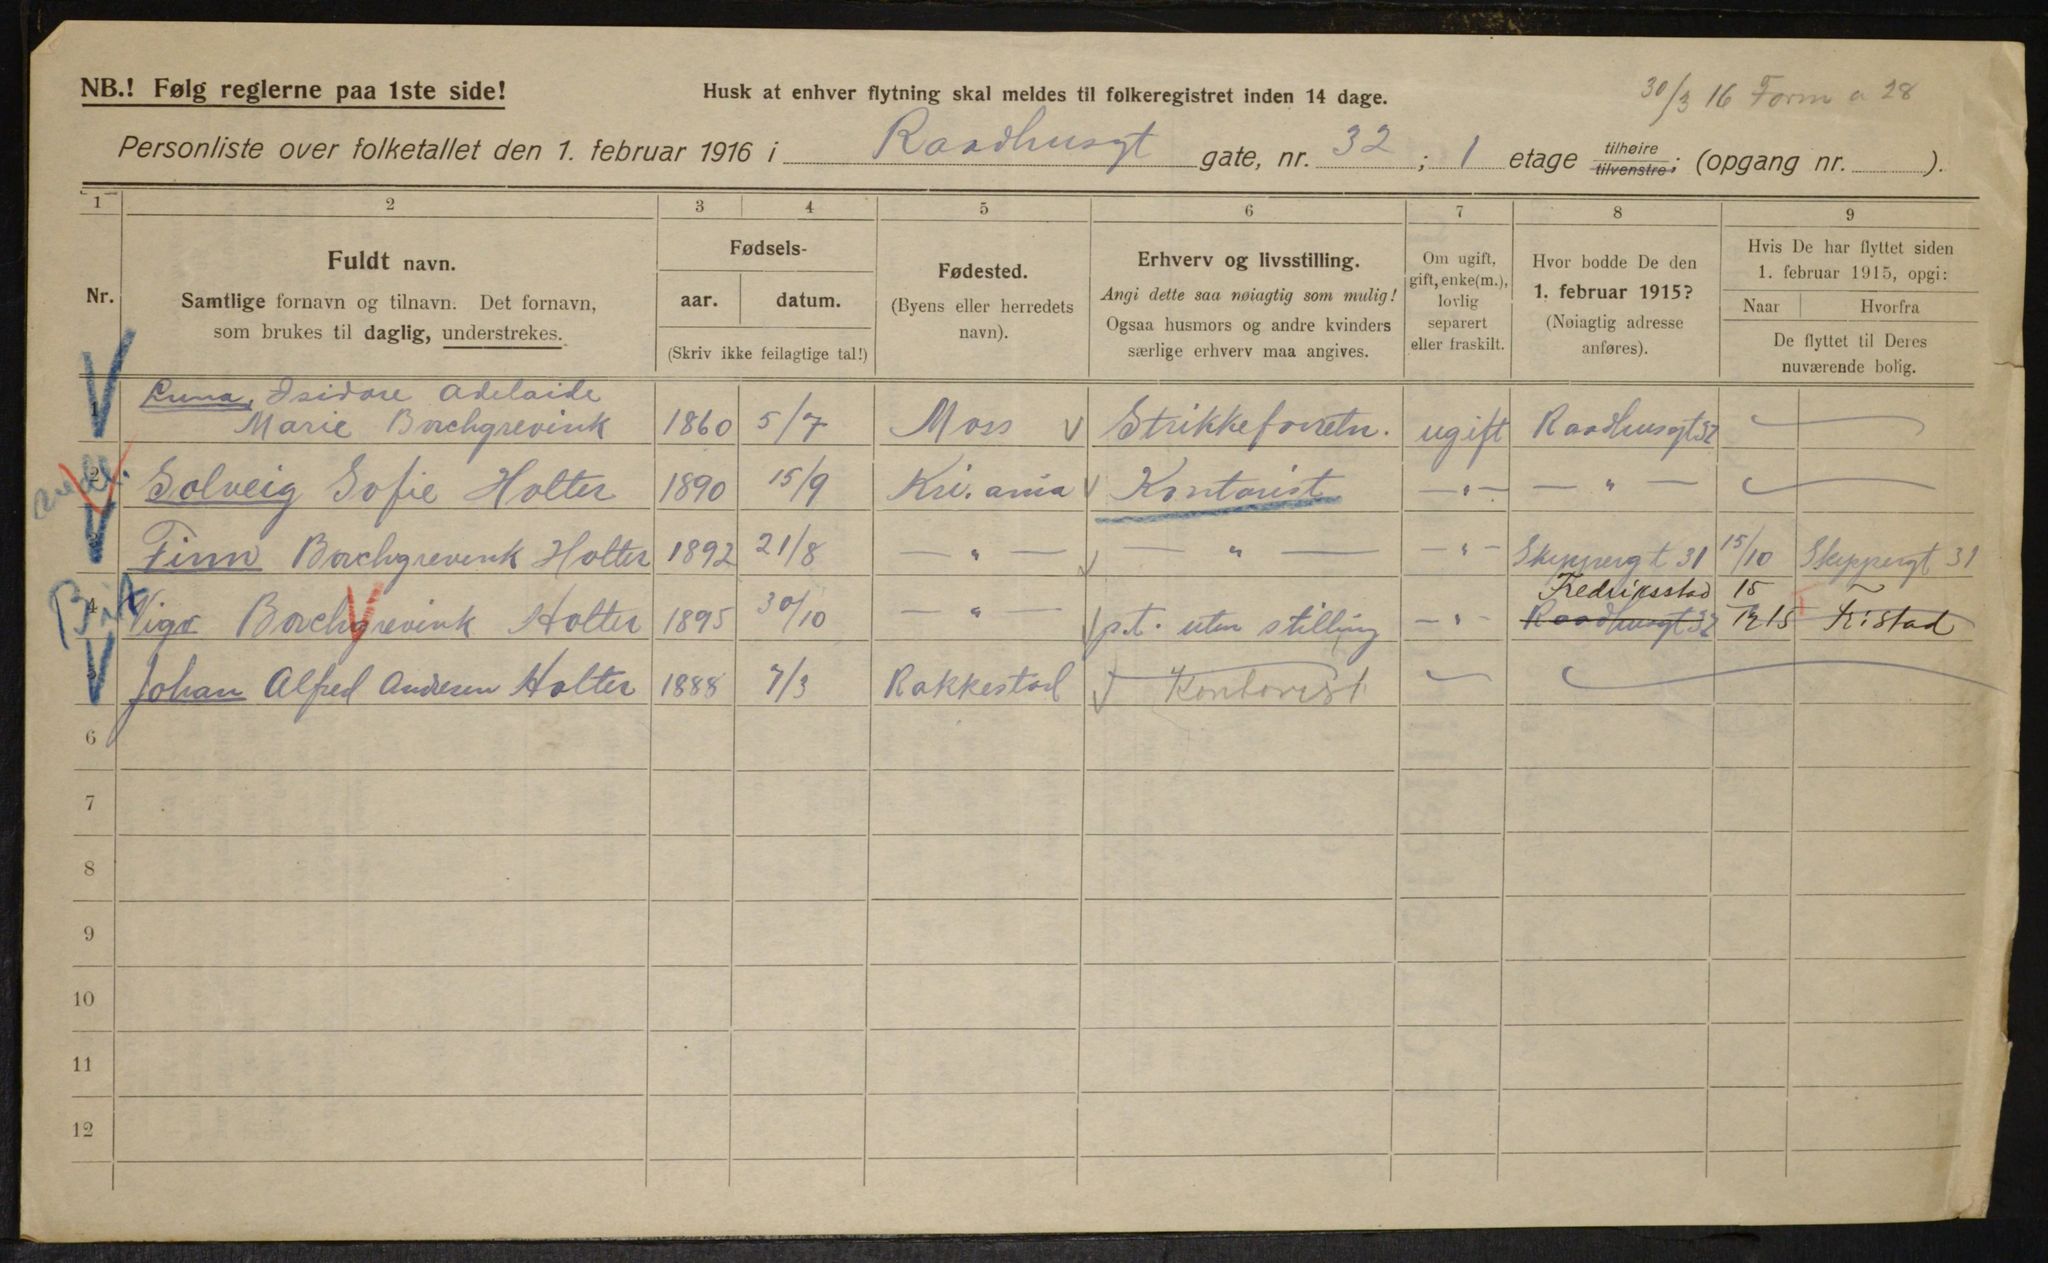 NB.! Følg reglerne paa 1ste side!
Husk at enhver flytning skal meldes til folkeregistret inden 14 dage.
30/3 16 Form a 28
Personliste over folketallet den 1. februar 1916 i Raadhusgt gate, nr. 32; 1 etage tilhøire tilvenstre; (opgang nr. ).
1 2 3 4 5 6 7 8 9
Nr.
Fuldt navn.
Samtlige fornavn og tilnavn. Det fornavn,
som brukes til daglig, understrekes.
Fødsels-
aar. datum.
(Skriv ikke feilagtige tal!)
Fødested.
(Byens eller herredets
navn).
Erhverv og livsstilling.
Angi dette saa nøiagtig som mulig!
Ogsaa husmors og andre kvinders
særlige erhverv maa angives.
Om ugift,
gift, enke(m.),
lovlig
separert
eller fraskilt.
Hvor bodde De den
1. februar 1915?
(Nøiagtig adresse
anføres).
Hvis De har flyttet siden
1. februar 1915, opgi:
Naar Hvorfra
De flyttet til Deres
nuværende bolig.
Luna, Isidore Adelaide
1 Marie Borchgrevink 1860 5/7 Moss Strikkeforretn. ugift Raadhusgt 32
2 Solveig Sofie Holter 1890 15/9 Kri.ania Kontorist — " — — " —
3 Finn Borchgrevink Holter 1892 21/8 — " — — " — — " — Skippergt 31 15/10 Skippergt 31
Fredriksstad 15
4 Vigo Borchgrevink Holter 1895 30/10 — " — p.t. uten stilling — " — Raadhusgt 32 15 Fr.stad
5 Johan Alfred Andresen Holter 1888 7/3 Rakkestad Kontorist
6
7
8
9
10
11
12